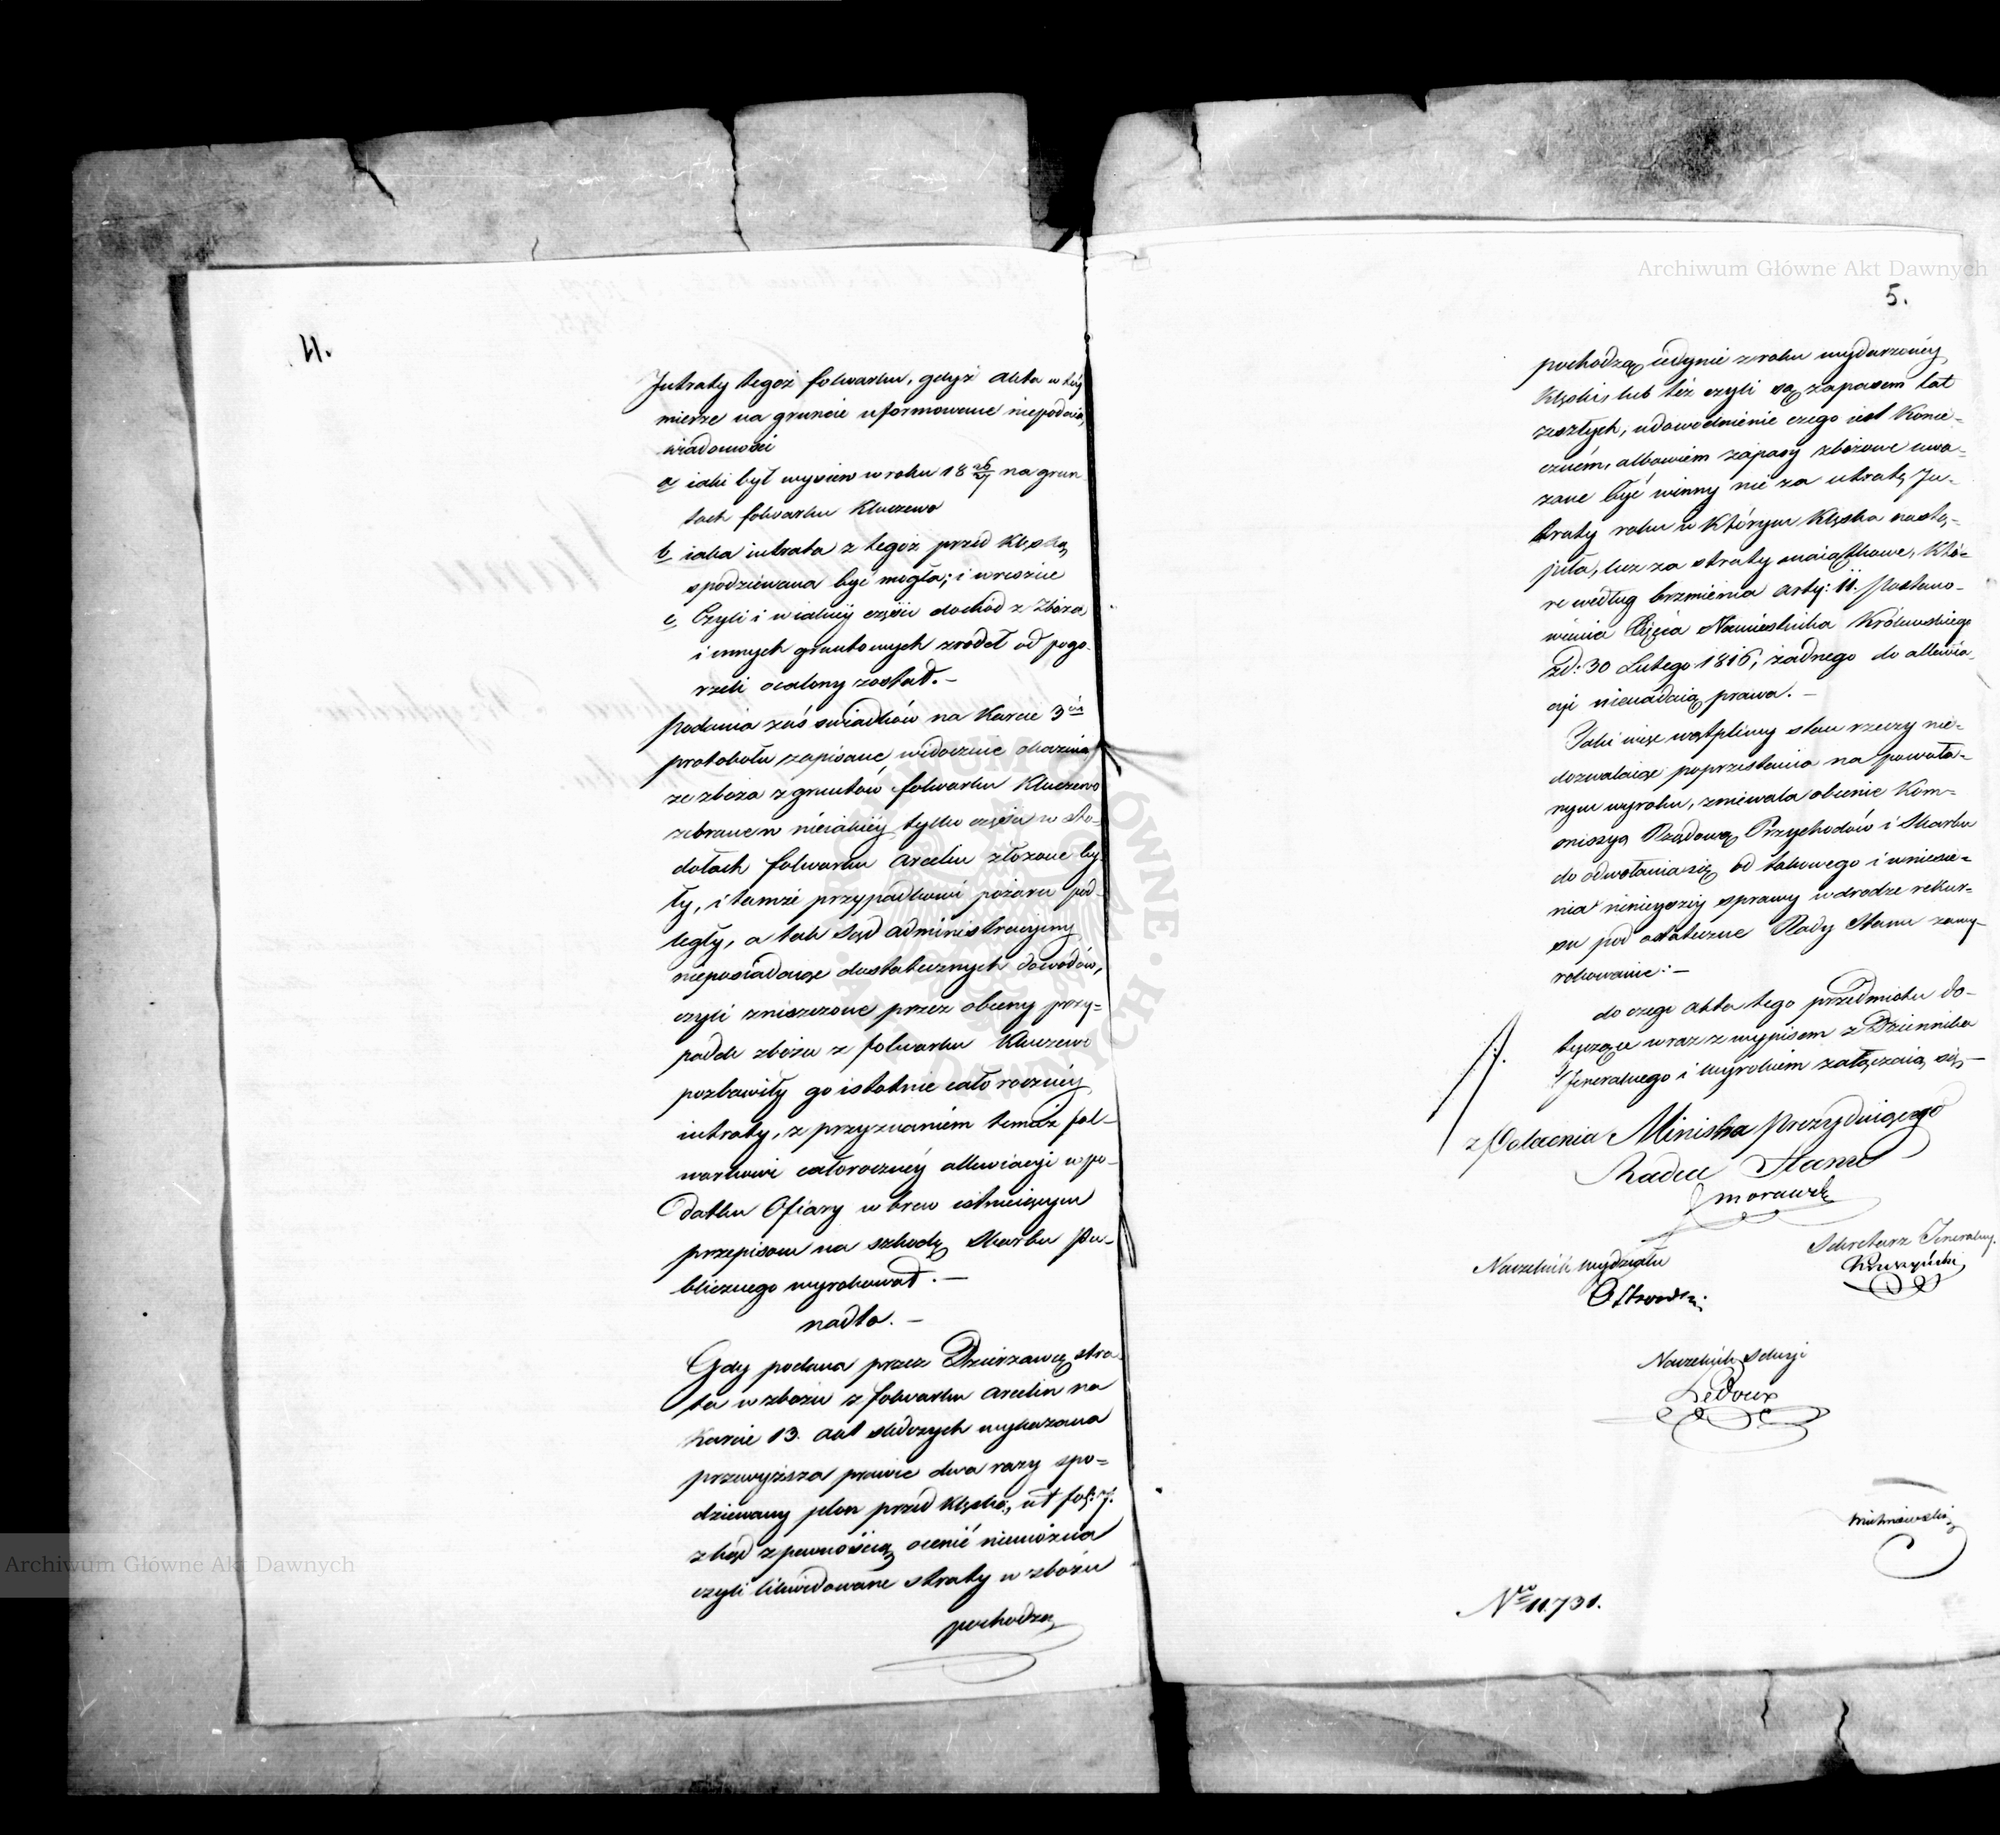 4.
Intraty tegoż folwarku, gdyż akta w téy
mierze na gruncie uformowane niepodaią
wiadomości
a iaki był wysiew w roku 18 26/27 na grun
tach folwarku Kluczewo
b iaka intrata z tegoż przed klęską
spodziewana być mogła; i wreszcie
c Czyli i w iakiéy części dochód z zboża
i innych gruntowych zrodeł od pogo-
rzeli ocalony został. —
Podania zaś swiadków na Karcie 3ciéy
protokołu zapisane, widocznie okazuią,
że zboża z gruntów folwarku Kluczewo
zebrane w nieiakiéy tylko części w sto-
dołach folwarku Arcelin złożone by-
ły, i tamże przypadkowi pożaru pod-
legły, a tak Sąd administracyiny
nieposiadaiąc dostatecznych dowodów,
czyli zniszczone przez obecny przy=
padek zboża z folwarku Kluczewo
pozbawiły go istotnie całoroczney
intraty, z przyznaniem temuż fol-
warkowi całoroczney allewiacyi w po-
datku Ofiary w brew istnieiącym
przepisom na szkodę Skarbu Pu-
blicznego wyrokował. —
nadto. —
Gdy podana przez Dzierzawcę stra-
ta w zbożu z folwarku Arcelin na
Karcie 13. akt sledczych wykazana
przewyższa prawie dwa razy spo=
dziewany plon przed klęską, ut fol: 7.
zkąd z pewnością ocenić niemożna
czyli likwidowane straty w zbożu
pochodzą
Archiwum Główne Akt Dawnych
Archiwum Główne Akt Dawnych
5.
pochodzą iedynie z roku wydarzonéy
Klęski, lub też czyli są zapasem lat
zeszłych, udowodnienie czego iest Konie-
cznem, albowiem zapasy zbożowe uwa-
żane być winny nie za utratę In-
traty roku w którym Klęska nastą-
piła, lecz za straty maiątkowe, któ-
re według brzmienia arty: 11. Postano-
wienia Xięcia Namiestnika Królewskiego
zd: 30 Lutego 1816, żadnego do allewia-
cyi nienadaią prawa. —
Taki więc wątpliwy stan rzeczy nie-
dozwalaiąc poprzestania na powoła-
nym wyroku, zniewala obecnie Kom-
missyą Rządową Przychodów i Skarbu
do odwołania się od takowego i wniesie-
nia ninieyszey sprawy w drodze rekur-
su pod ostateczne Rady Stanu zawy-
rokowanie: —
do czego akta tego przedmiotu do-
tyczące wraz z wypisem z Dziennika
Jeneralnego i wyrokiem załączaią się. —
z Polecenia Ministra Prezyduiącego
Radca Stanu
Morawski
Naczelnik wydziału
Sekretarz Jeneralny.
Naczelnik Sekcyi
Ledoux
No 11,731.